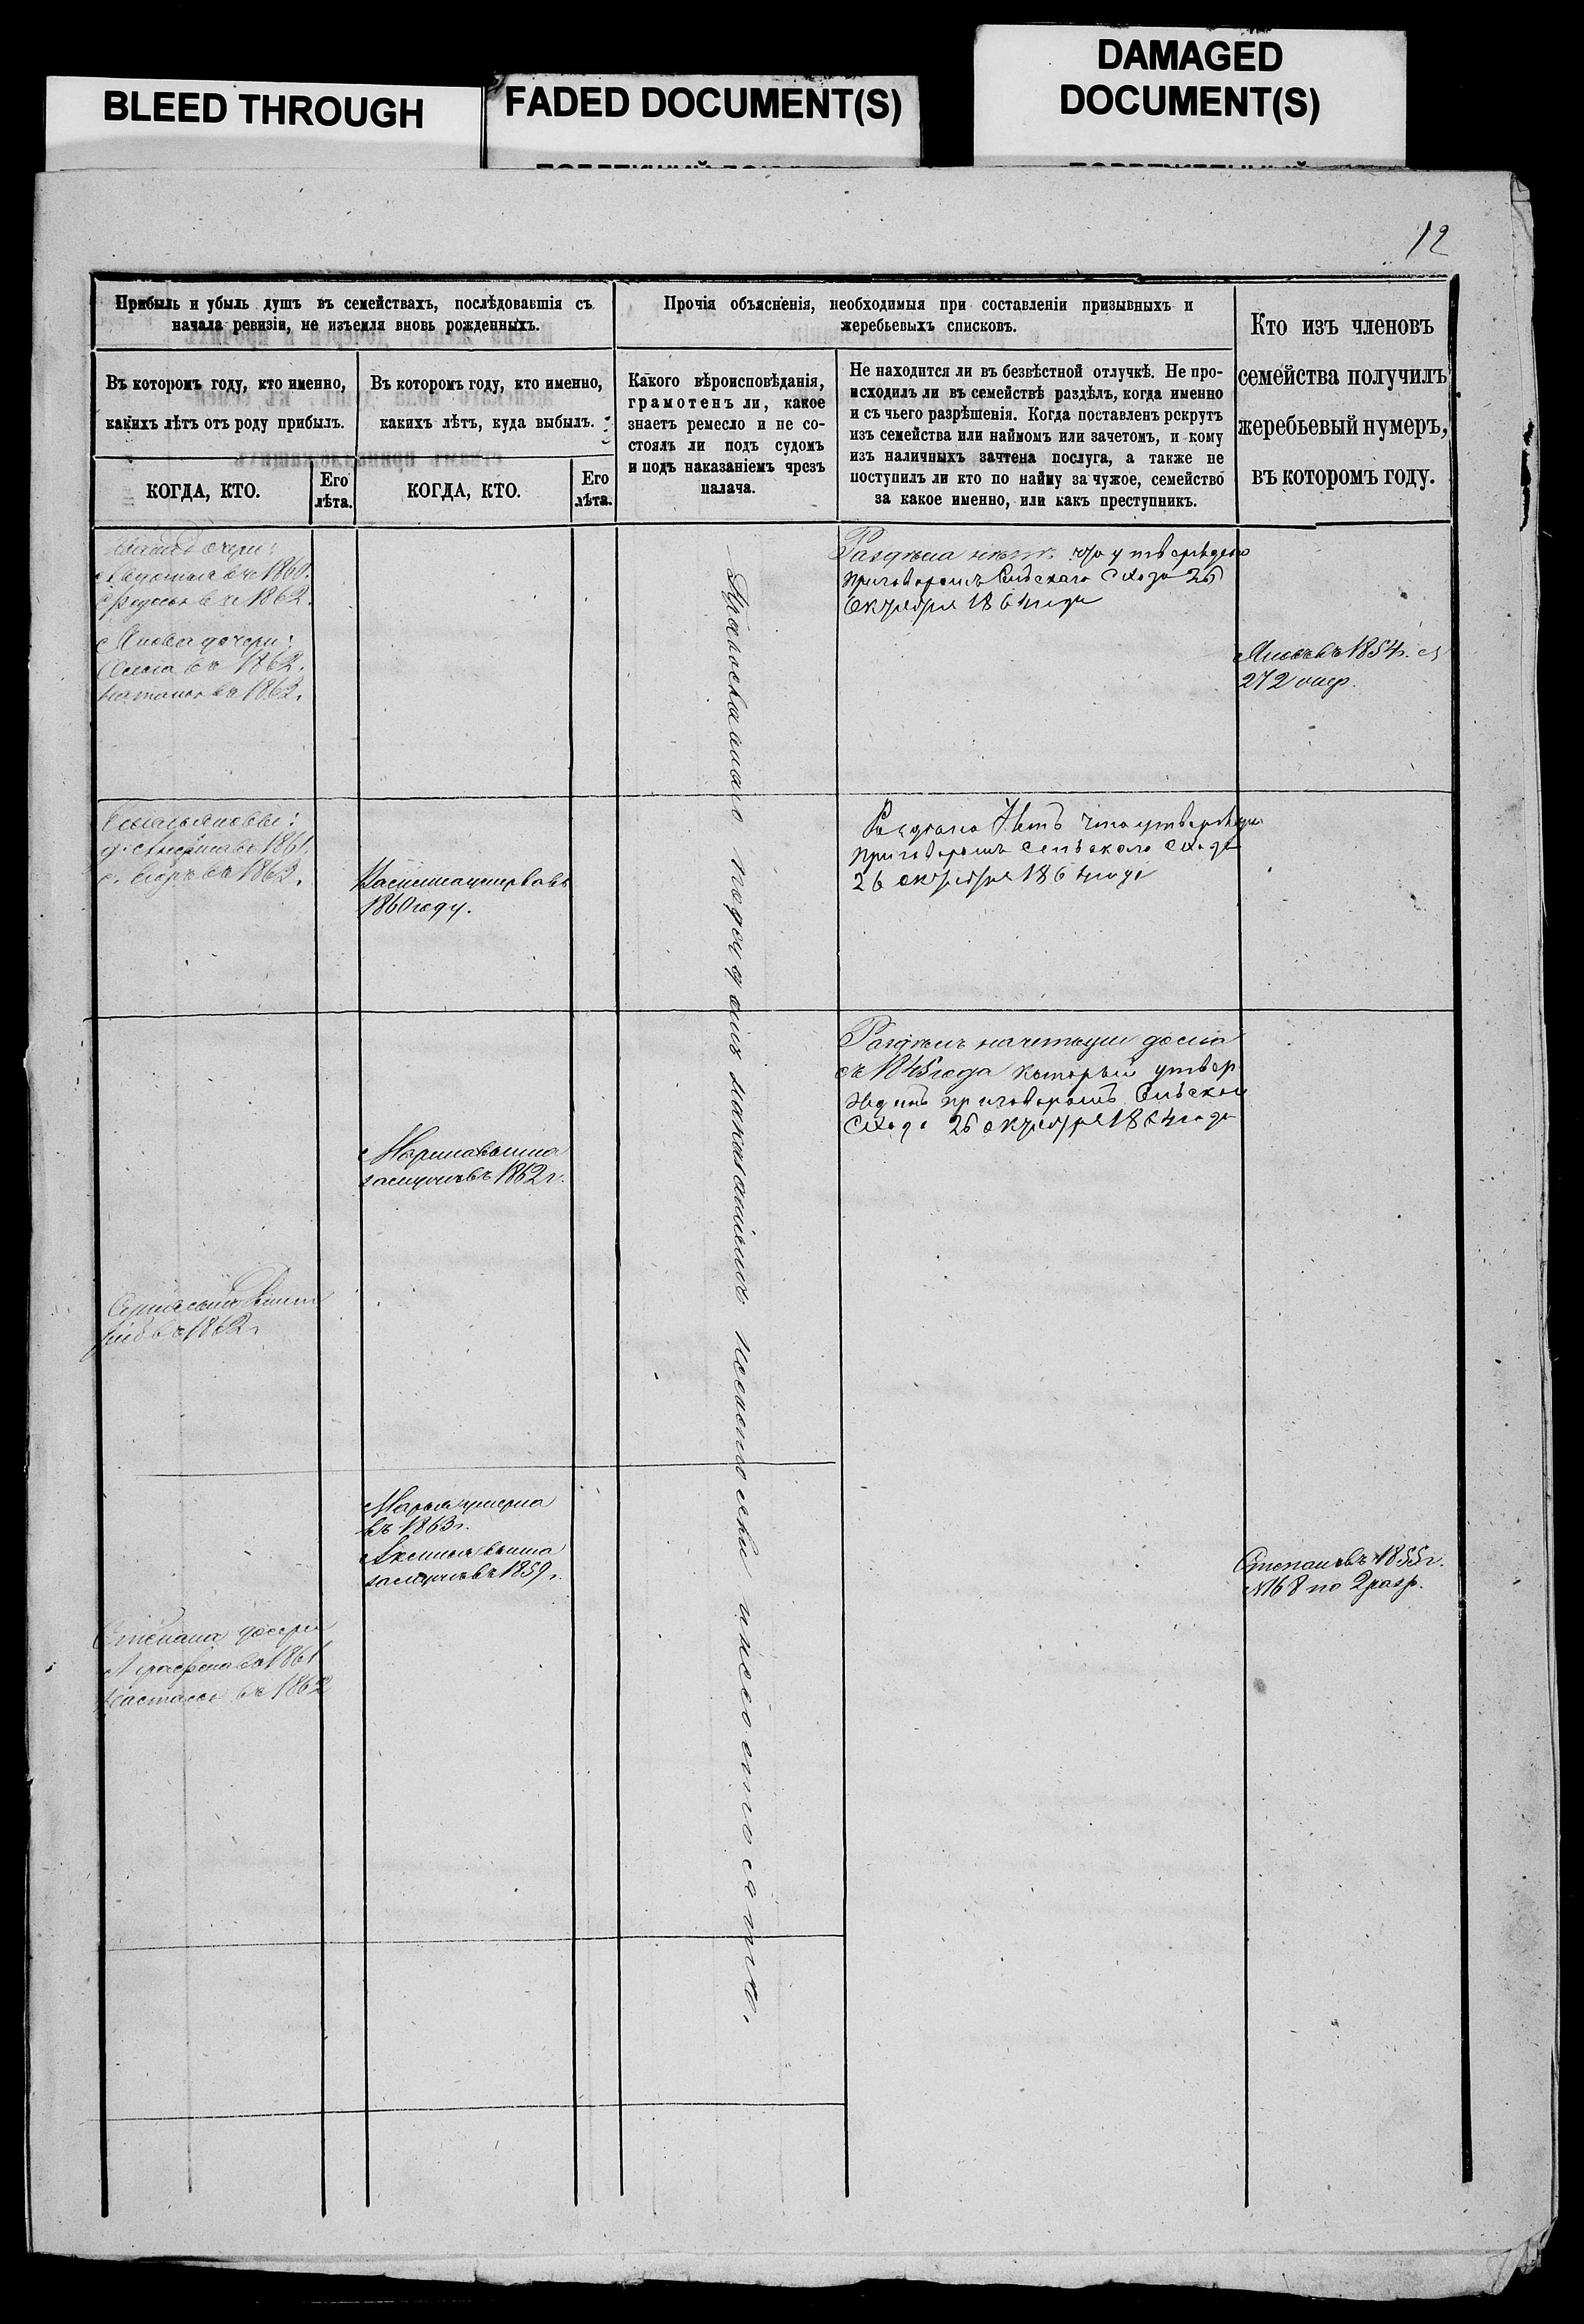 BLEED THROUGH
FADED DOCUMENT(S)
DAMAGED
DOCUMENT(S)
12
Прибыль и убыль душъ въ семействахъ, послѣдовавшія съ
начала ревизіи, не изъемля вновь рожденныхъ.
Въ которомъ году, кто именно,
какихъ лѣтъ отъ роду прибылъ.
КОГДА, КТО.
Его
лѣта.
Въ которомъ году, кто именно,
какихъ лѣтъ, куда выбылъ.
КОГДА, КТО.
Его
лѣта.
Прочія объясненія, необходимыя при составленіи призывныхъ и
жеребьевыхъ списковъ.
Какого вѣроисповѣданія,
грамотенъ ли, какое
знаетъ ремесло и не со-
стоялъ ли подъ судомъ
и подъ наказаніемъ чрезъ
палача.
Не находится ли въ безвѣстной отлучкѣ. Не про-
исходилъ ли въ семействѣ раздѣлъ, когда именно
и съ чьего разрѣшенія. Когда поставленъ рекрутъ
изъ семейства или наймомъ или зачетомъ, и кому
изъ наличныхъ зачтена послуга, а также не
поступилъ ли кто по найму за чужое, семейство
за какое именно, или какъ преступникъ.
Кто изъ членовъ
семейства получилъ
жеребьевый нумеръ,
въ которомъ году.
дочери:
въ 1860.
въ 1862.
дочери:
въ 1862.
въ 1862.
Раздѣла нѣтъ что утверждено
приговоромъ Сельскаго Схода 26
Октября 1864 года
въ 1854 г.
272
въ 1861.
въ 1862.
умерла въ
1860 году.
Раздѣла Нѣтъ что утверждено
приговоромъ сельскаго схода
26 октября 1864 года
Раздѣлъ
съ 1845 года который утвер
жденъ приговоромъ Сельскаго
Схода 26 октября 1864 года
Марина вышла
замужъ въ 1862 г.
сынъ
въ 1862 г.
Марья умерла
въ 1863 г.
Аксинья вышла
замужъ въ 1859 г.
Степанъ въ 1855 г.
№168 по 2 разр.
Степана дочери
Аграфена въ 1861
Настасья въ 1862
подъ судомъ наказаніемъ несостояли и несостоятъ.